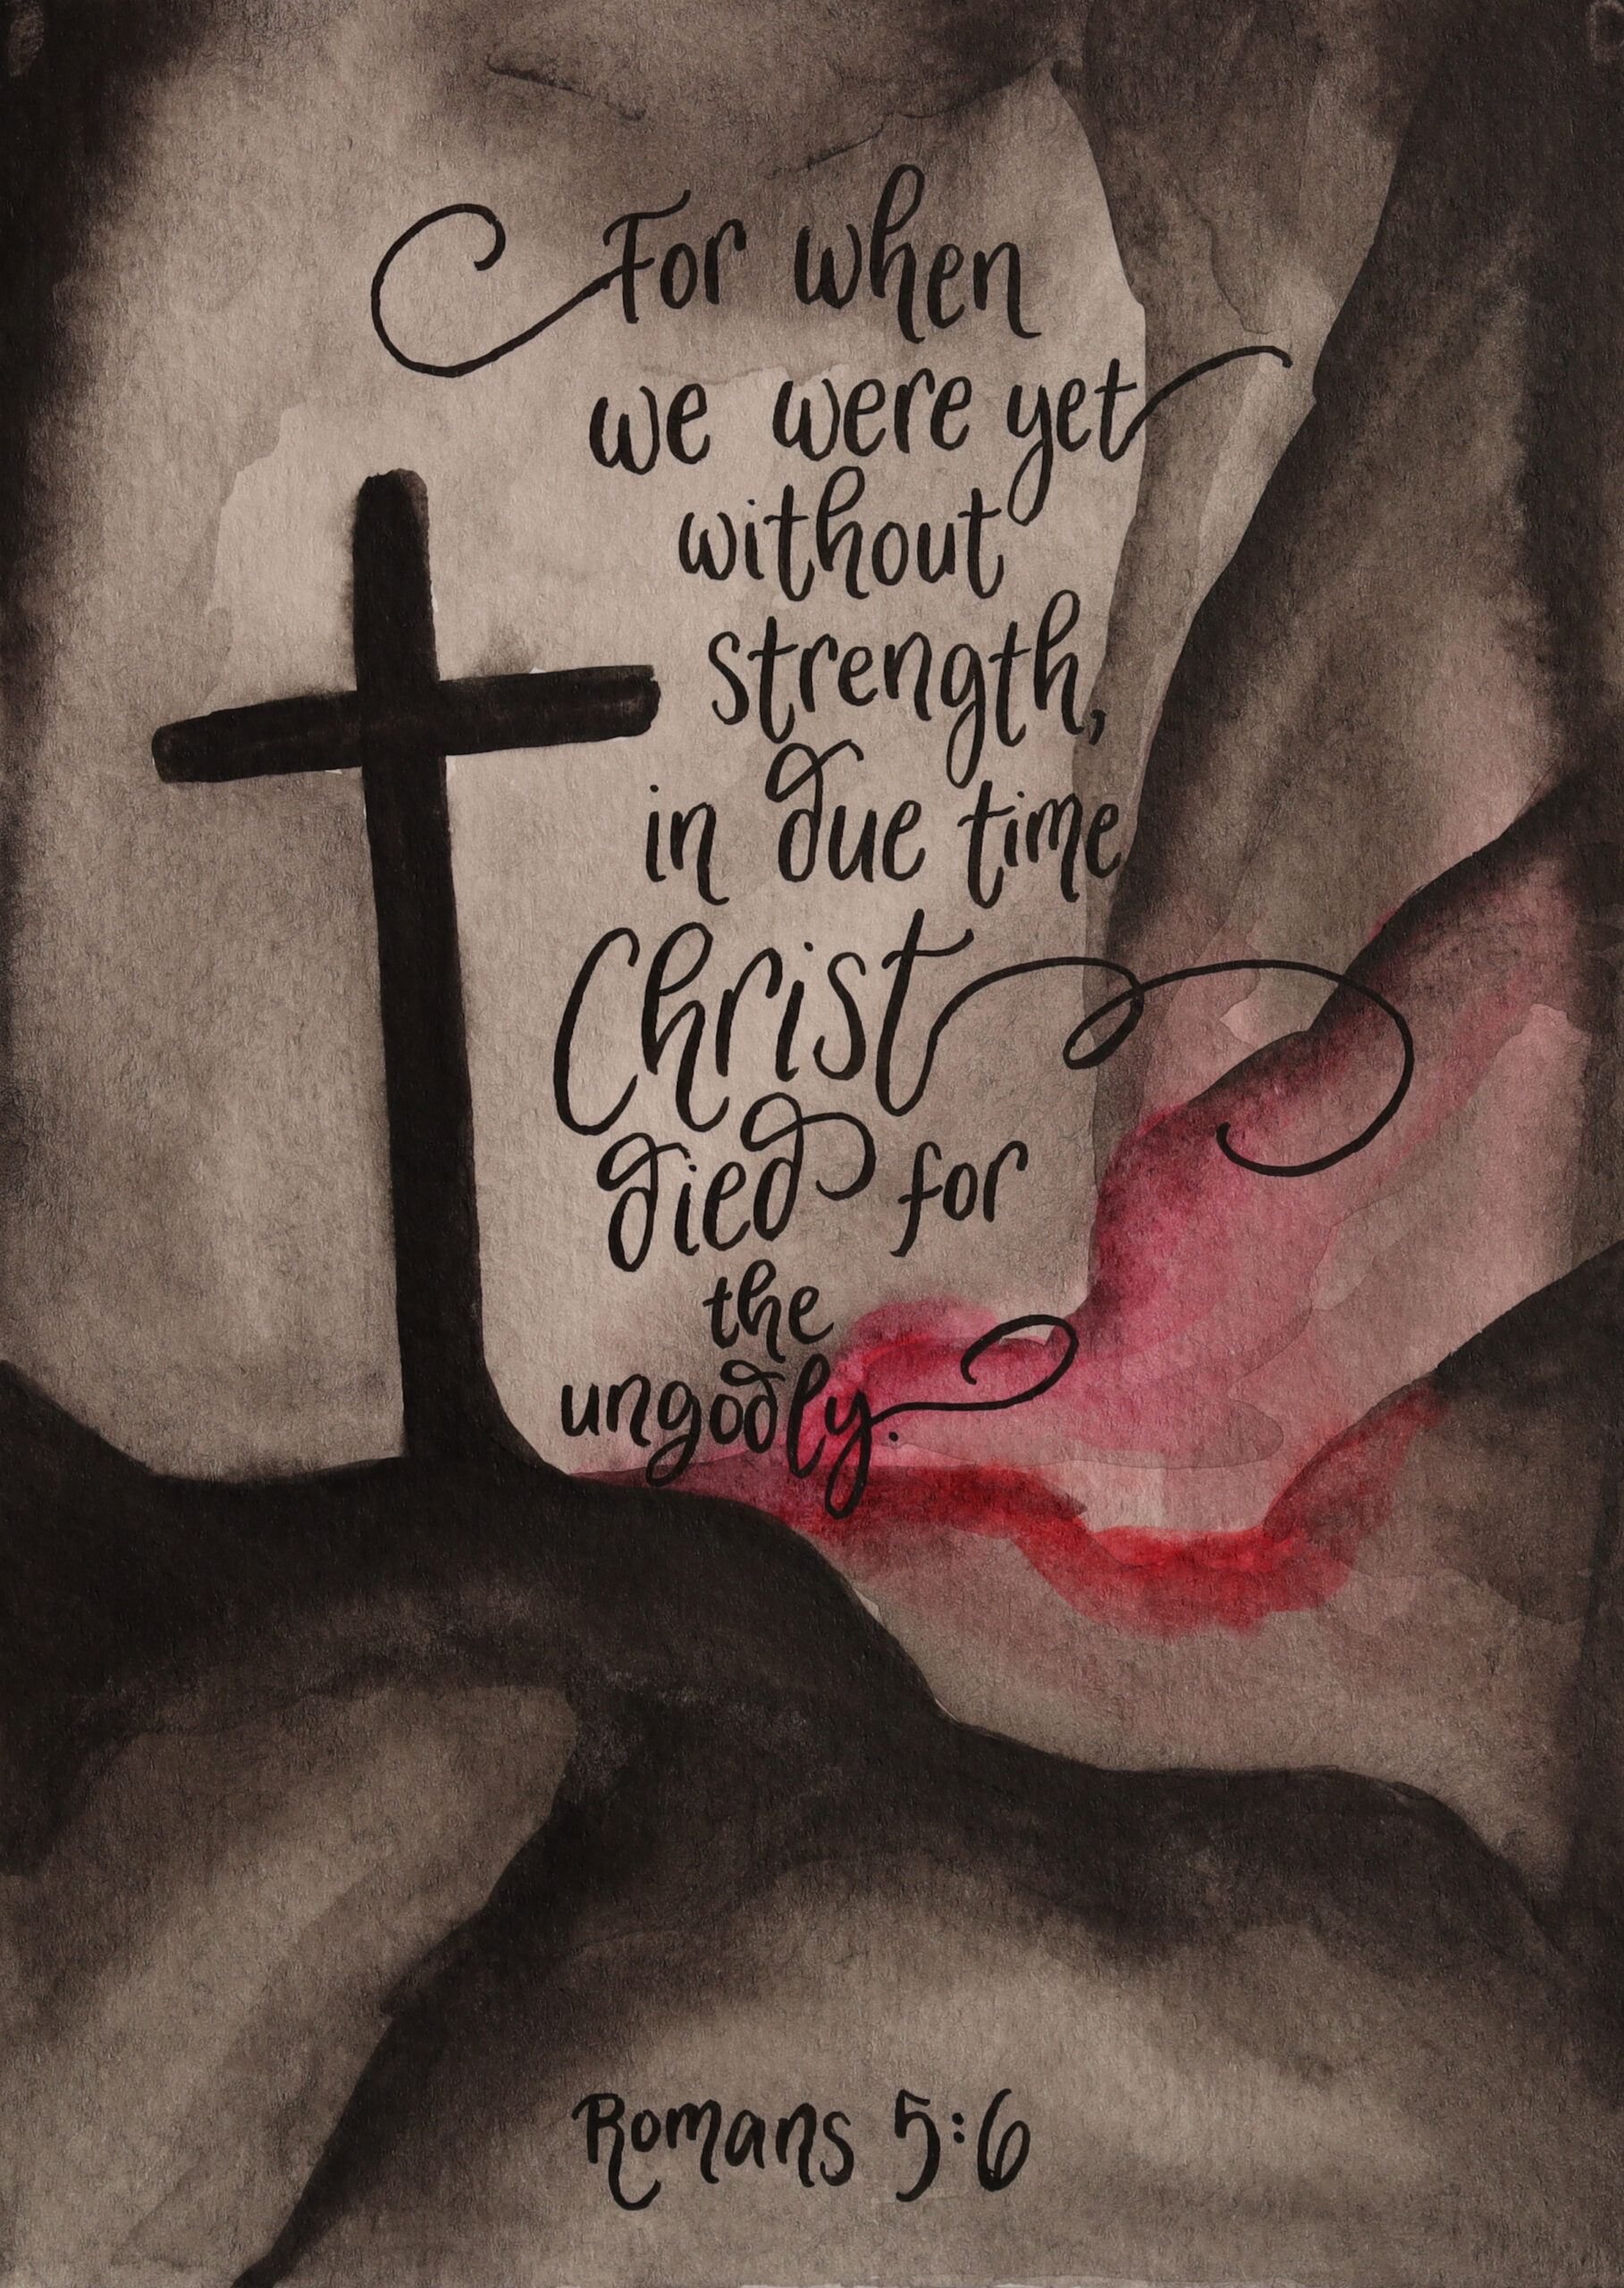 For when
we were yet
without
strength,
in due time
Christ
died for
the
ungodly.
Romans 5:6